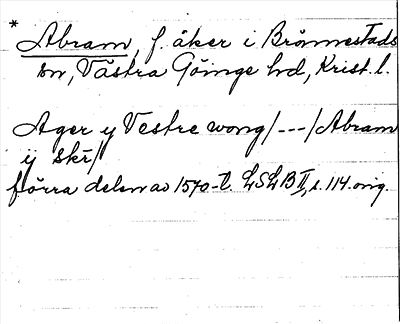 * Abram, f. åker i Brönnestads
sn, Västra Göinge hd, Krist. l.
Ager y Vestre wong/---/Abram
ij skr/
förra delen av 1570-t. LSLB II, s. 114 orig.